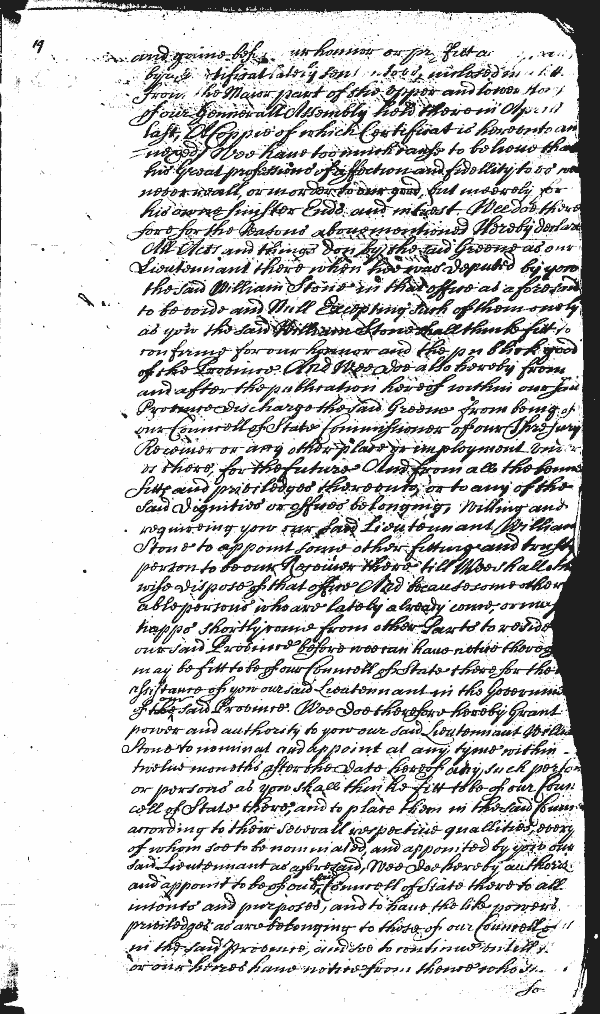 19
and gaine befor our honnor or
from the Major part of the upper and lower
of our Generall Assembly held there in Aprill
last, A Coppie of which Certificat is hereto an
=nexed) Wee have too much cause to believe that
his Great professions of affection and fidellity to us
never reall, or in order to our good, but meerely for
his owne sinister Ends and interest. Wee doe there
fore for the Reasons abovementioned Hereby declare
All Acts and things don by the said Greene as our
Lieutennant there when hee was deputed by you
the said William Stone in that office as aforesaid
to be voide and Null Excepting such of them onely
as you the said William Stone shall think fitt to
confirme for our honnor and the publick good
of the Province. And Wee doe also hereby from
and after the publication hereof within our said
Province discharge the said Greene from being of
our Councell of State Commissioner of our Thresury
Receiver or any other place or imployment
us there, for the future And from all the bene
fitts and priviledges thereunto, or to any of the
said dignities or offices belonging, Willing and
requireing you our said Lieutennant William
Stone to appoint some other fitting and trusty
person to be our Receiver there till Wee shall oth
wise dispose of that office And because some other
able persons who are lately already come, or may
happo shortly come from other Parts to reside
our said Province before wee can have notice thereof
may be fitt to be of our Councell of State there for the
assistance of you our said Lieutennant in the Governme
of the our said Province. Wee doe therefore hereby Grant
power and authority to you our said Lieutennant Willia
Stone to nominat and appoint at any tyme within
twelve moneths after the date hereof any such person
or persons as you shall thinke fitt to be of our Coun
cell of State there, and to place them in the said
according to their severall respective quallities, every
of whom soe to be nominated, and appointed by you our
said Lieutennant as aforesaid, Wee doe hereby authoris
and appoint to be of our said Councell of State there to all
intents and purposes, and to have the like powers
priviledges as are belonging to those of our Councell of
in the said Province, and soe to continue untill
or our heires have notice from thence who
so